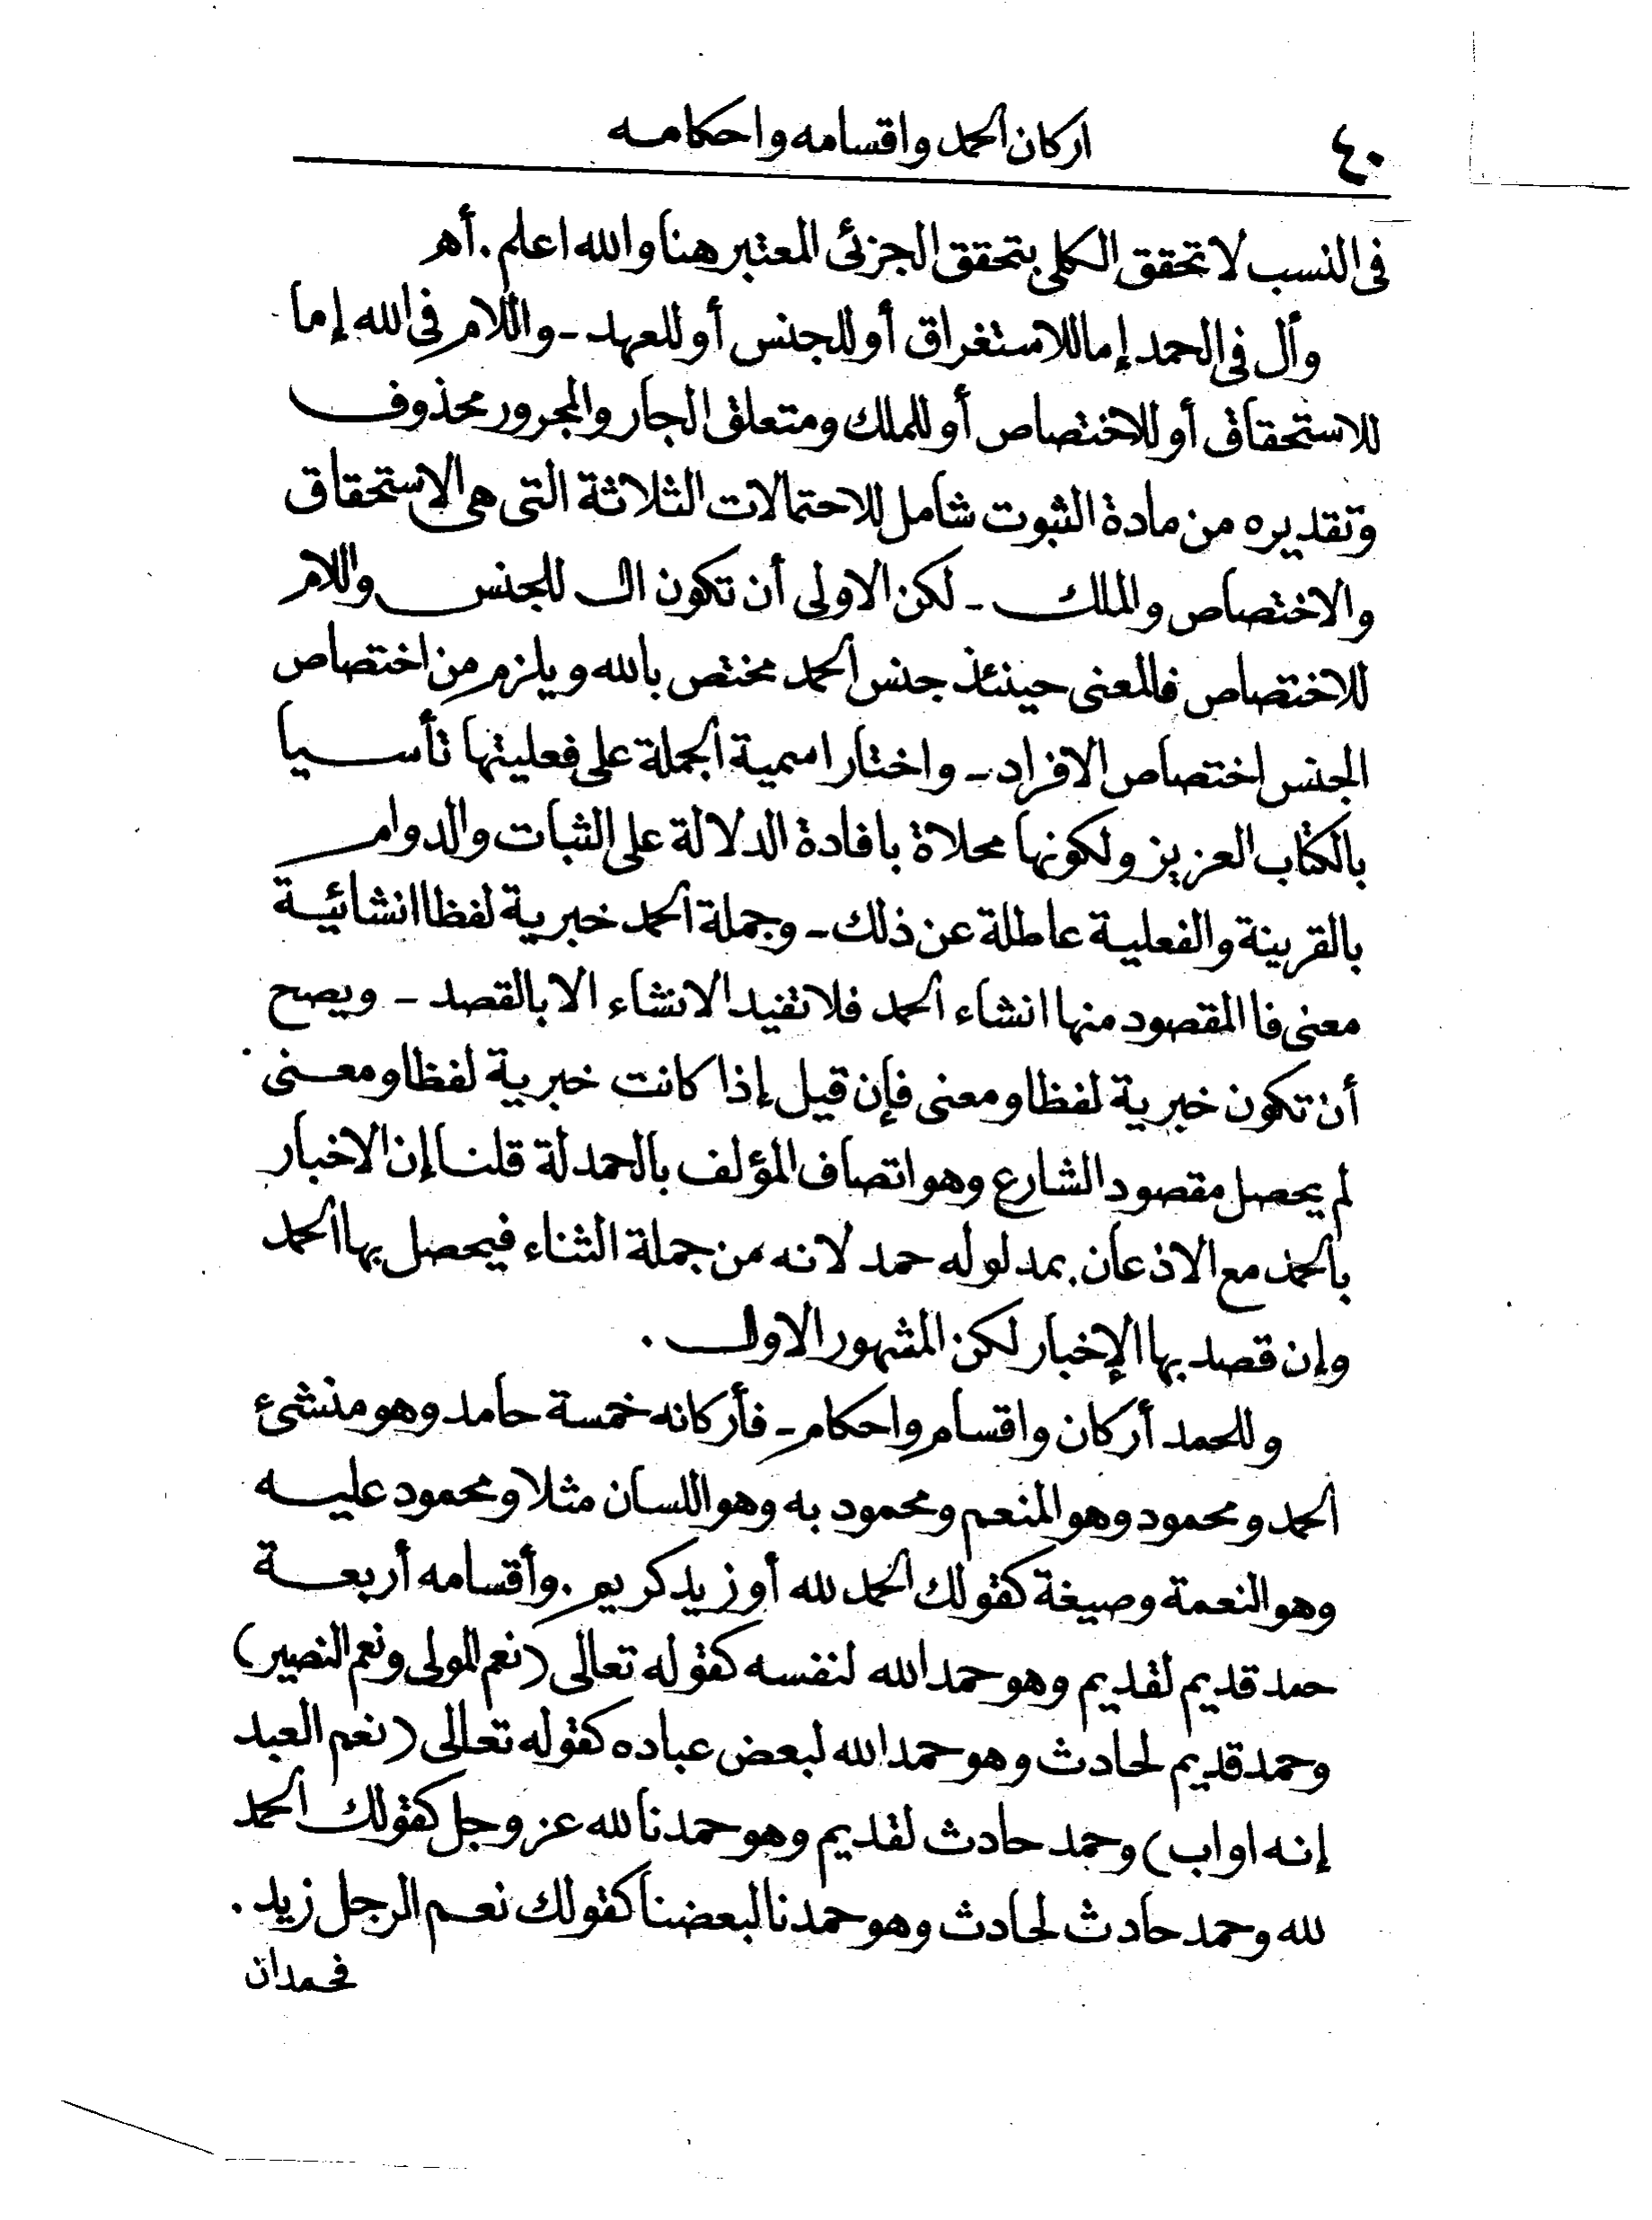 ٤٠
اركان الحمد واقسامه واحكامه
فى النسب لا تحقق الكلى بتحقق الجزئى المعتبر هنا والله اعلم . أهـ
وأل فى الحمد إما للاستغراق أو للجنس أو للعهد - واللام فى الله إما
للاستحقاق أو للاختصاص أو للملك ومتعلق الجار والمجرور محذوف
وتقديره من مادة الثبوت شامل للاحتمالات الثلاثة التى هى الاستحقاق
والاختصاص والملك - لكن الاولى أن تكون ال للجنس واللام
للاختصاص فالمعنى حينئذ جنس الحمد مختص بالله ويلزم من اختصاص
الجنس اختصاص الافراد - واختار اسمية الجملة على فعليتها تأسيا
بالكتاب العزيز ولكونها محلاة بافادة الدلالة على الثبات والدوام
بالقرينة والفعلية عاطلة عن ذلك - وجملة الحمد خبرية لفظا انشائية
معنى فا المقصود منها انشاء الحمد فلا تفيد الانشاء الا بالقصد - ويصح
أن تكون خبرية لفظا ومعنى فإن قيل إذا كانت خبرية لفظا ومعنى
لم يحصل مقصود الشارع وهو اتصاف المؤلف بالحمدلة قلنا إن الاخبار
بالحمد مع الاذعان بمدلوله حمد لانه من جملة الثناء فيحصل بها الحمد
وإن قصد بها الإخبار لكن المشهور الاول .
وللحمد أركان واقسام واحكام - فأركانه خمسة حامد وهو منشئ
الحمد ومحمود وهو المنعم ومحمود به وهو اللسان مثلا ومحمود عليه
وهو النعمة وصيغة كقولك الحمد لله أو زيد كريم . وأقسامه أربعة
حمد قديم لقديم وهو حمد الله لنفسه كقوله تعالى (نعم المولى ونعم النصير)
وحمد قديم لحادث وهو حمد الله لبعض عباده كقوله تعالى (نعم العبد
إنه اواب) وحمد حادث لقديم وهو حمدنا لله عز وجل كقولك الحمد
لله وحمد حادث لحادث وهو حمدنا لبعضنا كقولك نعم الرجل زيد .
فحمدان